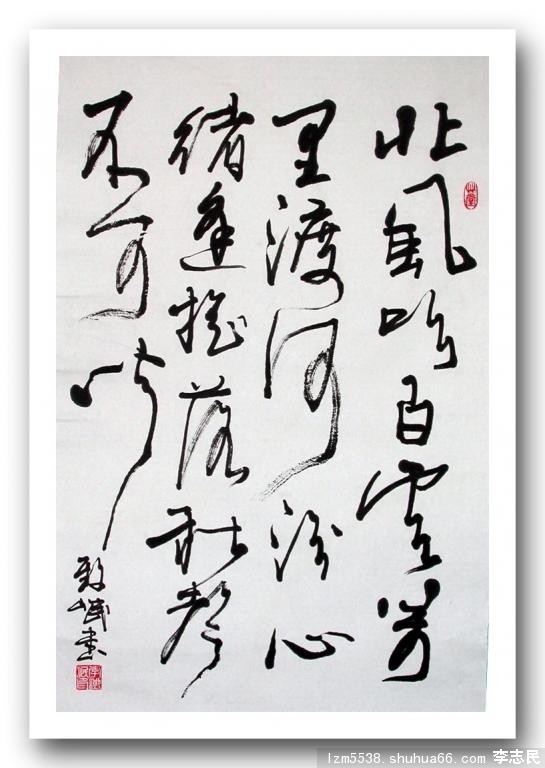 北風吹白雲萬
里渡河汾心
緒逢搖落秋聲
不可聞
書
lzm5538.shuhua66.com 李志民